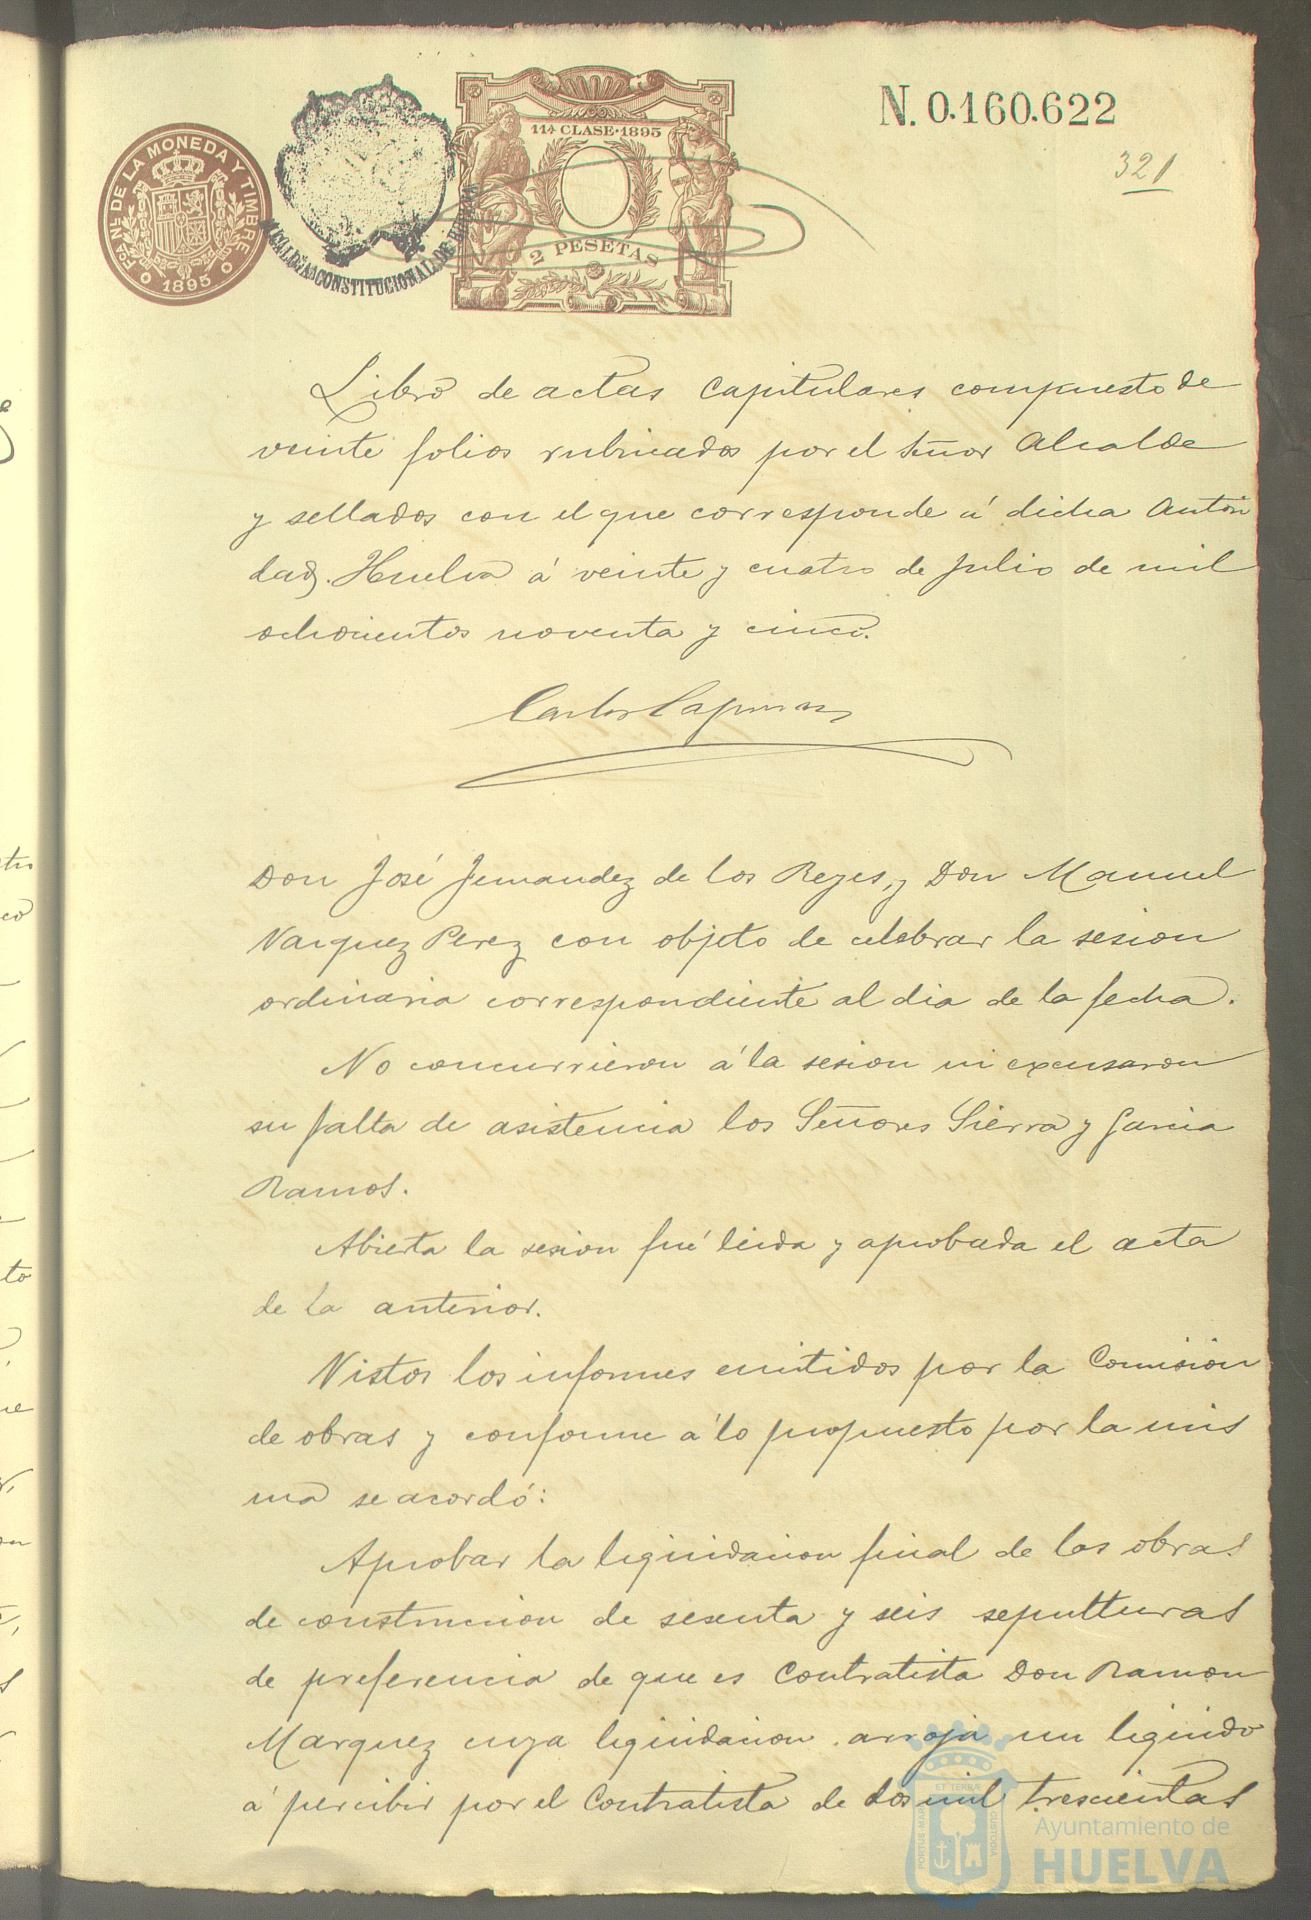 N. 0.160.622
321
11ª CLASE·1895
2 PESETAS
Fca. Nal. DE LA MONEDA Y TIMBRE
1895
ALCALDIA CONSTITUCIONAL DE HUELVA
Libro de actas Capitulares compuesto de
veinte folios rubricados por el Señor Alcalde
y sellados con el que corresponde á dicha Autori
dad. Huelva á veinte y cuatro de Julio de mil
ochocientos noventa y cinco.
Carlos
Don José Fernandez de los Reyes, y Don Manuel
Vazquez Perez con objeto de celebrar la sesion
ordinaria correspondiente al dia de la fecha.
No concurrieron á la sesion ni excusaron
su falta de asistencia los Señores Sierra y Garcia
Ramos.
Abierta la sesion fué leida y aprobada el acta
de la anterior.
Vistos los informes emitidos por la Comisión
de obras y conforme á lo propuesto por la mis
ma se acordó:
Aprobar la liquidacion final de las obras
de construccion de sesenta y seis sepulturas
de preferencia de que es Contratista Don Ramon
Marquez cuya liquidacion arroja un liquido
á percibir por el Contratista de dos mil trescientas
PORTUS MARIS
ET TERRÆ
CUSTODIA
Ayuntamiento de
HUELVA